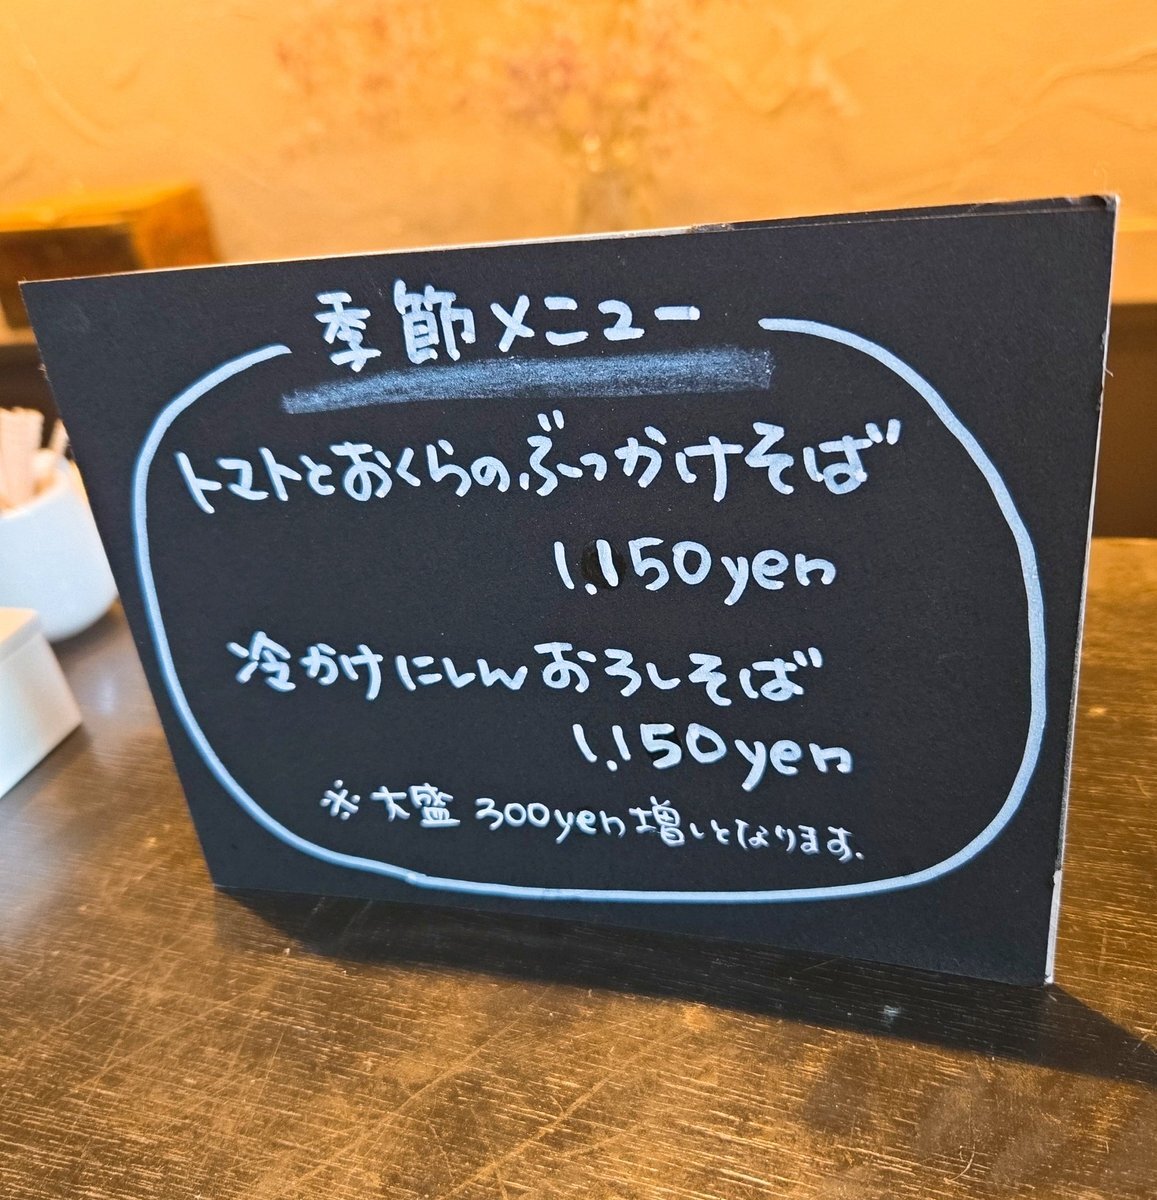 季節メニュー
トマトとおくらのぶっかけそば
1,150yen
冷かけにしんおろしそば
1,150yen
※大盛 300yen増しとなります.